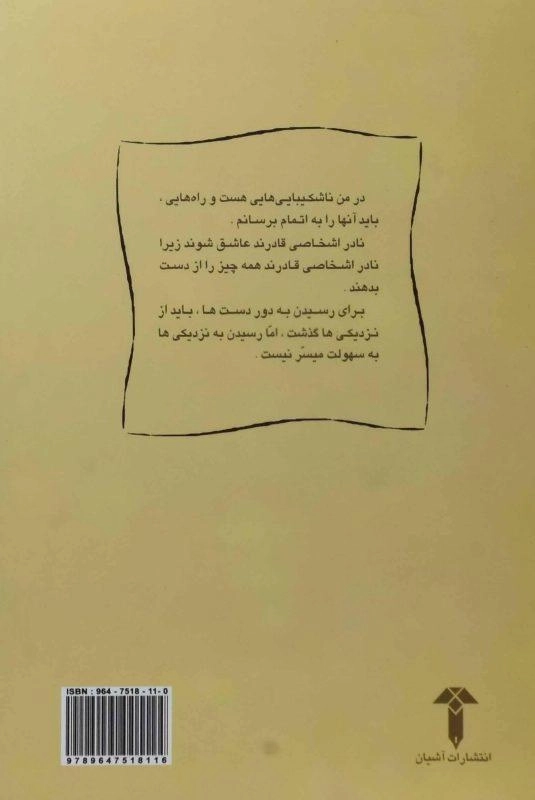 در من ناشکیبایی‌هایی هست و راه‌هایی ،
باید آنها را به اتمام برسانم .
نادر اشخاصی قادرند عاشق شوند زیرا
نادر اشخاصی قادرند همه چیز را از دست
بدهند .
برای رسیدن به دور دست ها ، باید از
نزدیکی ها گذشت ، امّا رسیدن به نزدیکی ها
به سهولت میسّر نیست .
ISBN : 964 - 7518 - 11- 0
9789647518116
انتشارات آشیان